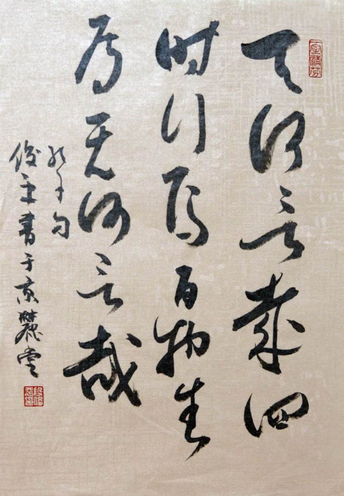 天何言哉四
时行焉百物生
焉天何言哉
孔子句
俊書于京麓